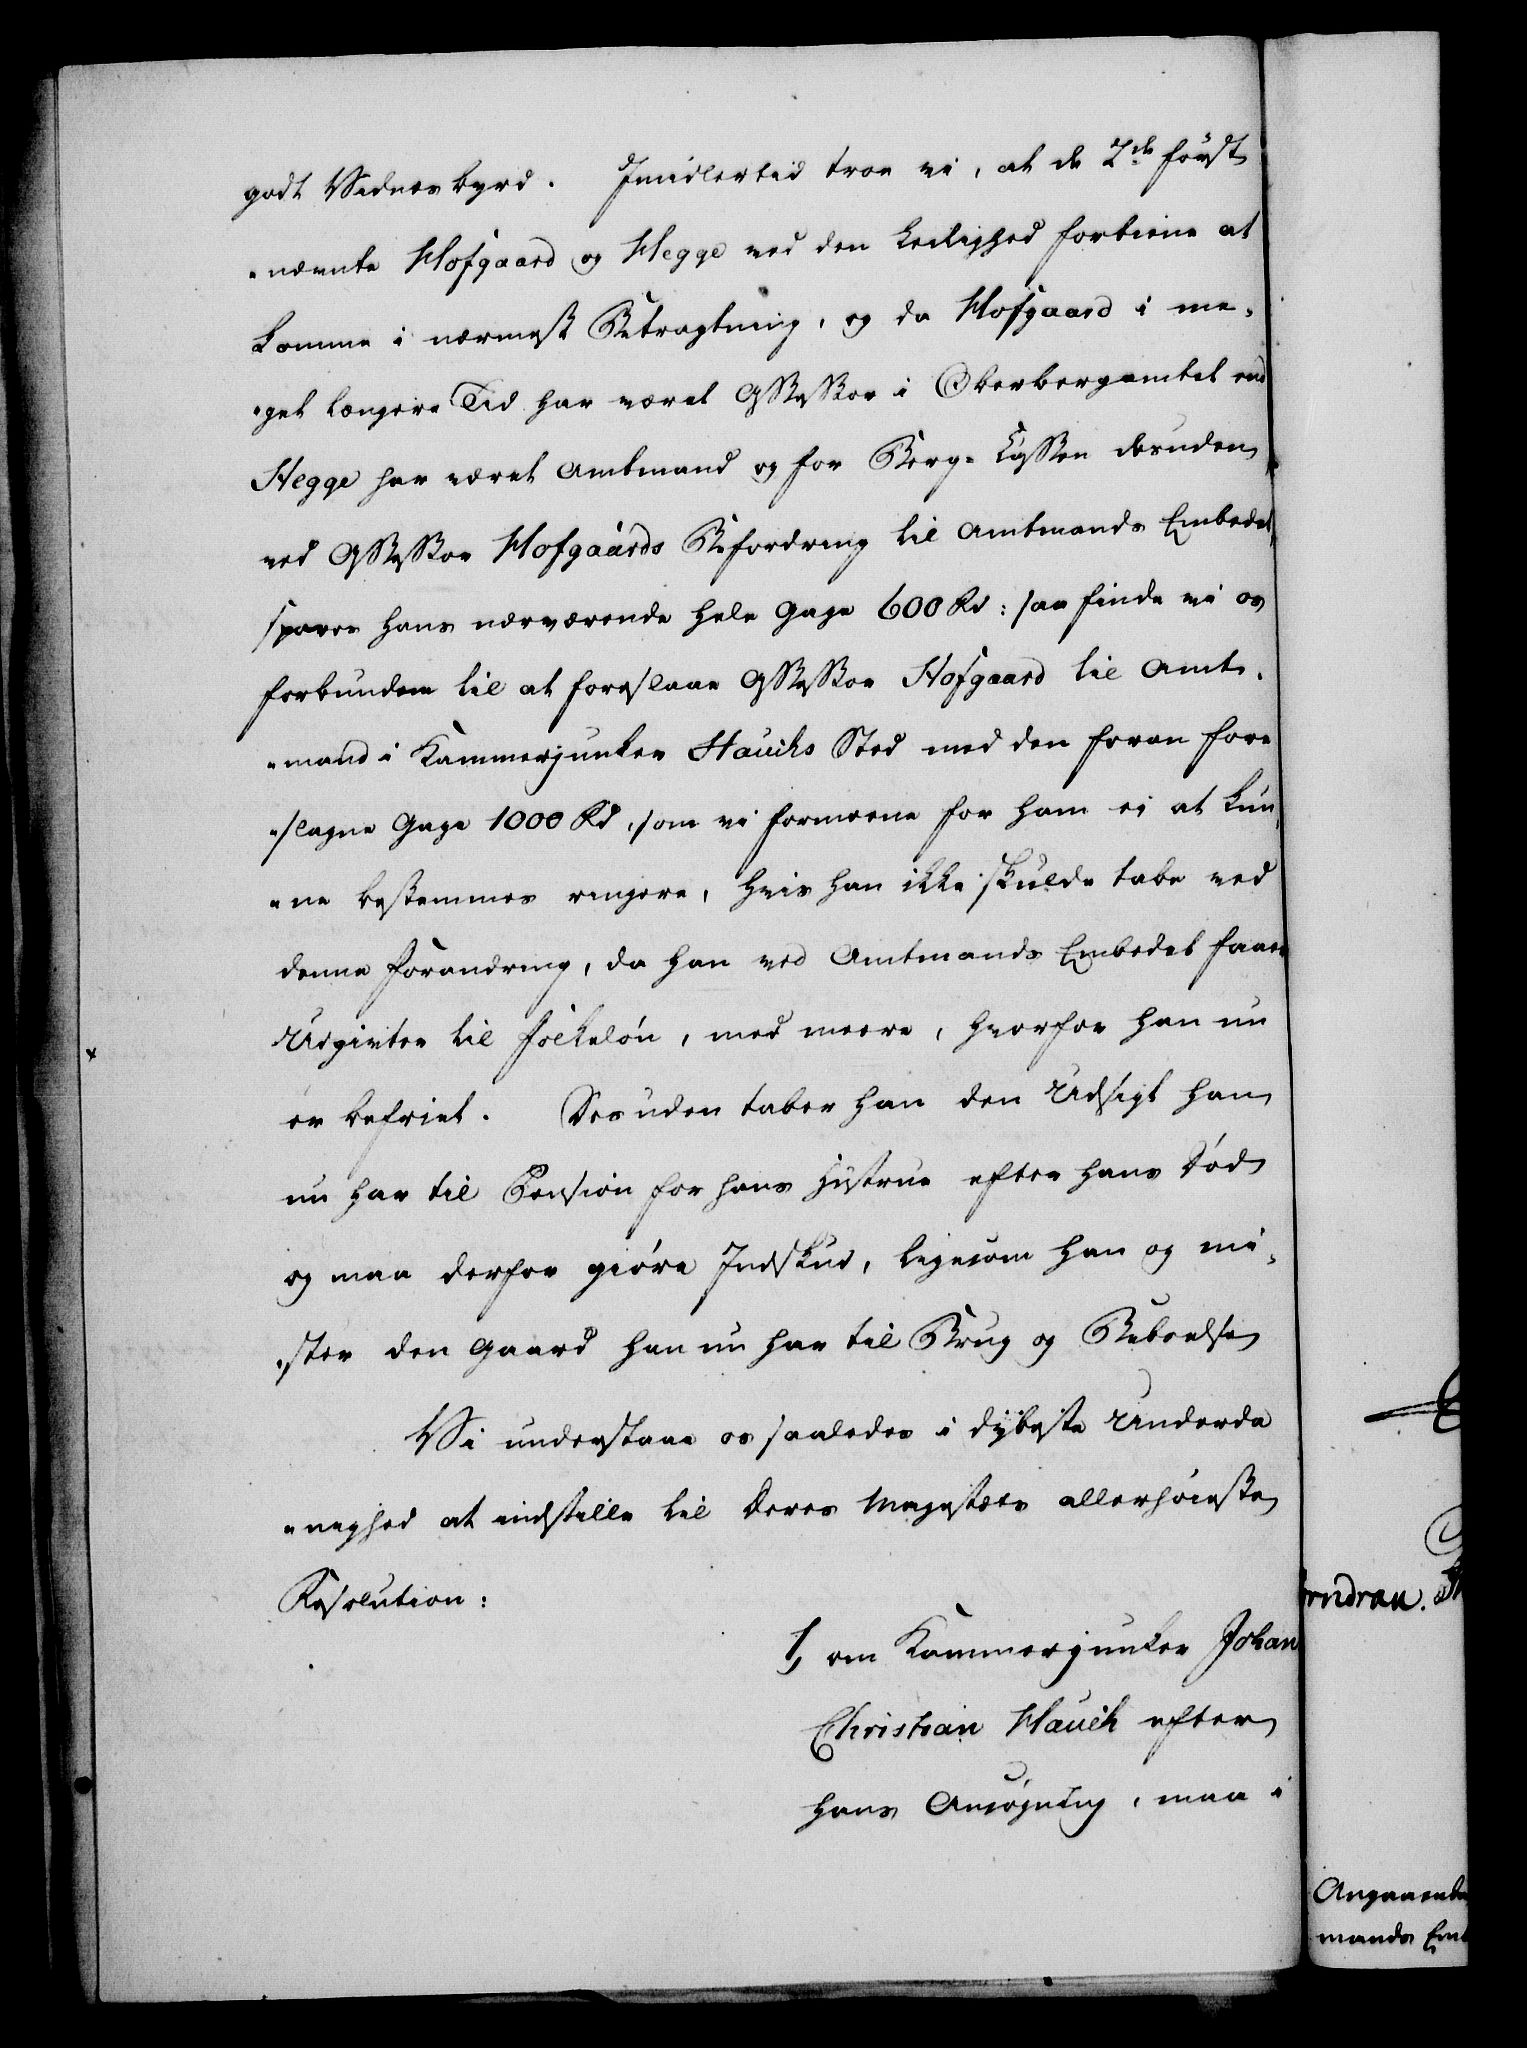 godt Vidnesbyrd. Imidlertid troe vi, at de 2de først
"nævnte Hofgaard og Hegge ved den Leilighed fortiene at
komme i nærmest Betragtning, og da Hofgaard i me,
"get længere Tid har været Assessor i Oberbergamtet end
Hegge har været Amtmand og for Berg-Cassen desuden
ved Assessor Hofgaards Befordring til Amtmands Embedet
spares hans nærværende hele Gage 600 Rd: saa finde vi os
forbunden til at foreslaae Assessor Hofgaard til Amt,
"mand i Kammerjunker Hauchs Sted med den foran fore
"slagne Gage 1000 Rd, som vi formeene for ham ei at kun,
"ne bestemmes ringere, hvis han ikke skulde tabe ved
denne Forandring, da han ved Amtmands Embedet faaer
Udgivter til Folkeløn, med meere, hvorfor han nu
er befriet. Desuden taber han den Udsigt han
nu har til Pension for hans Hustrue efter hans Død
og maa derfor giøre Indskud, ligesom han og mi,
"ster den Gaard han nu har til Brug og Beboelse
Vi understaae os saaledes i dybeste Underda
"nighed at indstille til Deres Majestæts allerhøieste
Resolution:
1, om Kammerjunker Johan
Christian Hauch efter
hans Ansøgning, maa i
Angaaende
mands Emb